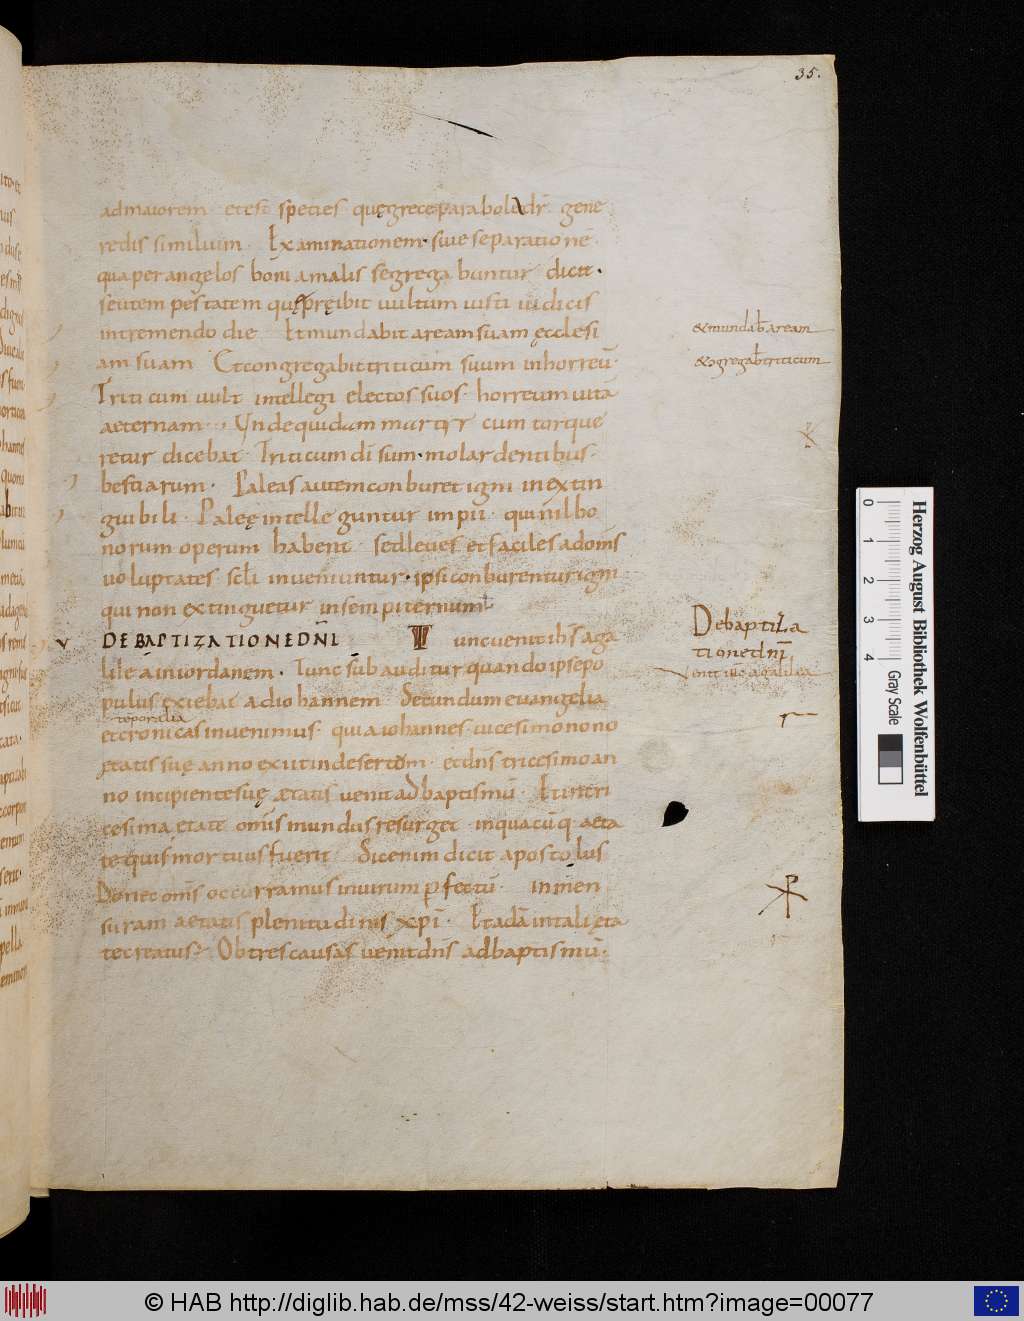 35.
ad maiorem · et est species quę grece parabola dr̄ gene
redis similium · Examinationem · siue separationē ·
qua per angelos boni a malis segregabuntur dicit ·
seu tempestatem quę pręibit uultum iusti iudicis
in tremendo die Et mundabit aream suam ęcclesi
am suam Et congregabit triticum suum in horreū ·
Triticum uult intellegi electos suos · horreum uitā
aeternam · Unde quidam martyr cum torque
retur dicebat · Triticum dī sum · molar dentibus ·
bestiarum · Paleas autem conburet igni inextin
guibili · Paleę intelleguntur impii · qui nil bo
norum operum habent · sed leues et faciles ad om̄s
uoluptates sc̄li inueniuntur · ipsi conburentur igni
qui non extinguetur in sempiternum
V DE BAPTIZATIONE DN̄I Tunc uenit ihs̄ a ga
lilea in iordanem · Tunc subauditur quando ipse po
pulus exiebat ad iohannem Secundum euangelia
temporalia
et cronicas inuenimus · quia iohannes · uicesimo nono
ętatis suę anno exiit in desertum · et dn̄s tricesimo an
no incipiente suę ætatis uenit ad baptismū · Et in tri
cesima etate om̄is mundus resurget in quacūq · aeta
te quis mortuus fuerit Sic enim dicit apostolus
Donec om̄s occurramus in uirum ꝑfectū · in men
suram aetatis plenitudinis xp̄i · Et adā in tali ęta
te creatus · Ob tres causas uenit dn̄s ad baptismū ·
& mundab̄ aream
& ɔgregab̄ triticum
De baptiza
tione dn̄i
Venit ihs̄ a galilea
Herzog August Bibliothek Wolfenbüttel
0 1 2 3 4
Gray Scale
© HAB http://diglib.hab.de/mss/42-weiss/start.htm?image=00077